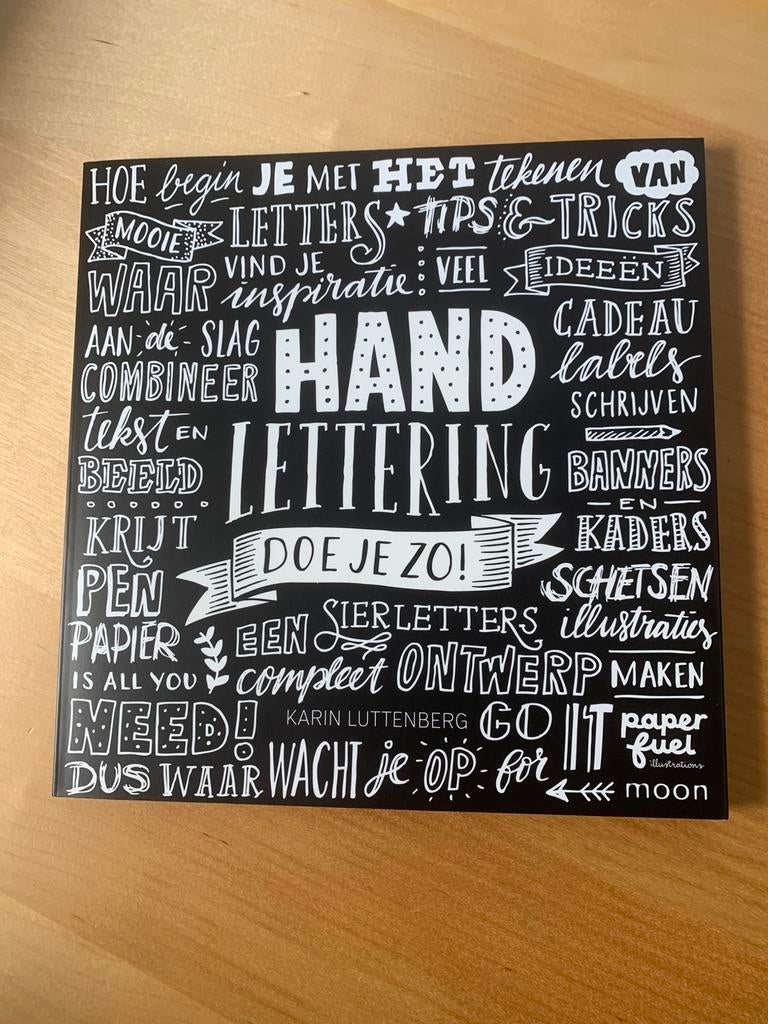 HOE begin JE MET HET tekenen VAN
MOOIE LETTERS TIPS & TRICKS
WAAR VIND JE inspiratie VEEL IDEEËN
AAN de SLAG
COMBINEER
tekst EN
BEELD
KRIJT
PEN
PAPIER
IS ALL YOU
NEED!
HAND
LETTERING
DOE JE ZO!
CADEAU
labels
SCHRIJVEN
BANNERS
EN
KADERS
SCHETSEN
illustraties
MAKEN
EEN SIERLETTERS
compleet ONTWERP
KARIN LUTTENBERG
GO IT
paper
fuel
illustrations
DUS WAAR WACHT je OP for
moon